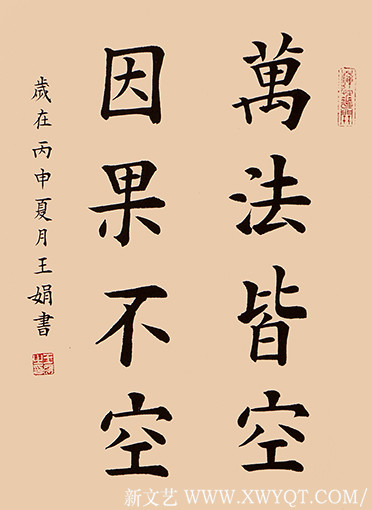 萬法皆空
因果不空
歲在丙申夏月王娟書
新文艺 WWW.XWYQT.COM/